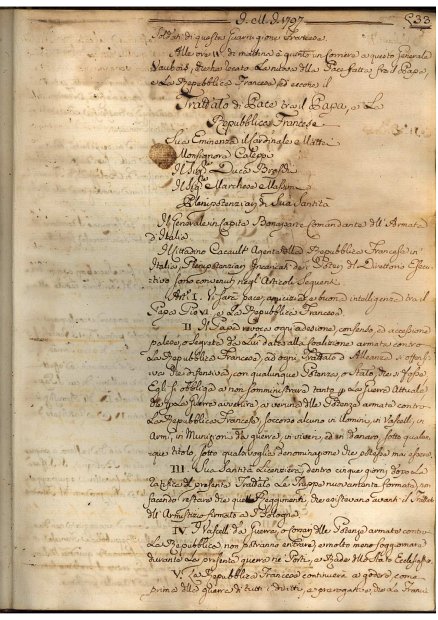 1797
533
Soldati di questa guarnigione Francese.
Alle ore di mattina è giunto un Corriere a questo Generale
Vaubois, che ha recato la nuova della Pace fatta fra il Papa,
e la Repubblica Francese, ed eccone il
Trattato di Pace tra il Papa, e la
Repubblica Francese
Sua Eminenza il Cardinale Mattei
Monsignore Caleppi
Il Sig.r Duca Braschi
Il Sig.r Marchese Massimi
Plenipotenziarj di Sua Santità
Il Generale in Capite Bonaparte Comandante dell'Armata
d'Italia
Il Cittadino Cacault Agente della Repubblica Francese in
Italia, Plenipotenziarj del Direttorio Esecu-
tivo sono convenuti negli Articoli seguenti
Art.o I. Vi sarà pace, amicizia, e buona intelligenza tra il
Papa Pio VI. e la Repubblica Francese
II. Il Papa revoca ogni adesione, consenso, ed accessione
palese, o segreta da Lui data alla Coalizione armata contro
la Repubblica Francese, ad ogni Trattato d'Alleanza sì offensi-
va che difensiva, con qualunque Potenza, o Stato, che si fosse
Egli si obbliga a non somministrare tanto per la Guerra attuale
che per le Guerre avvenire, a veruna delle Potenze armate contro
la Repubblica Francese, soccorso alcuno in Uomini, in Vascelli, in
Armi, in Munizioni da guerra, in viveri, ed in danaro, sotto qualun-
que titolo, sotto qualsivoglia denominazione che possa mai essere.
III. Sua Santità licenzierà, dentro cinque giorni dopo la
ratifica del presente Trattato le Truppe nuovamente formate, non
facendo restare che quei Reggimenti che esistevano avanti il Trattato
dell'Armistizio firmato a Bologna.
IV. I Vascelli da Guerra, o Corsari delle Potenze armate contro
la Repubblica non potranno entrare, e molto meno soggiornare
durante la presente guerra ne' Porti, e Rade dello Stato Ecclesiastico.
V. La Repubblica Francese continuerà a godere, come
prima della guerra di tutti i diritti, e prerogative, che la Francia